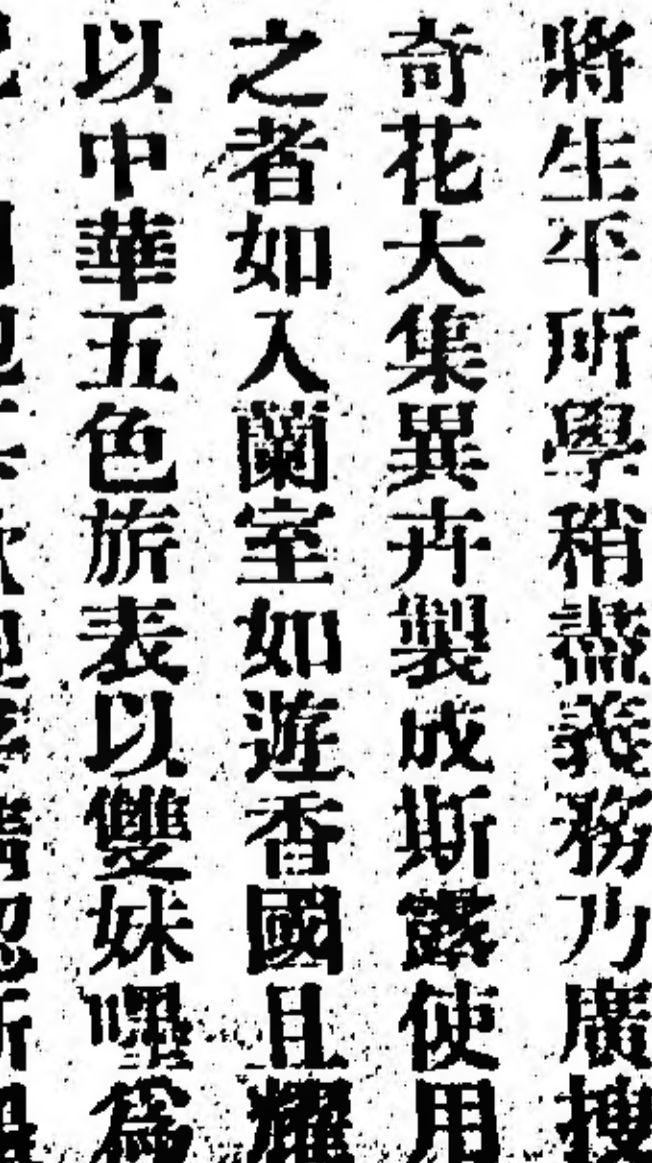 將生平所學稍盡義務乃廣搜
奇花大集異卉製成斯露使用
之者如入蘭室如遊香國且耀
以中華五色旂表以雙妹嘿為